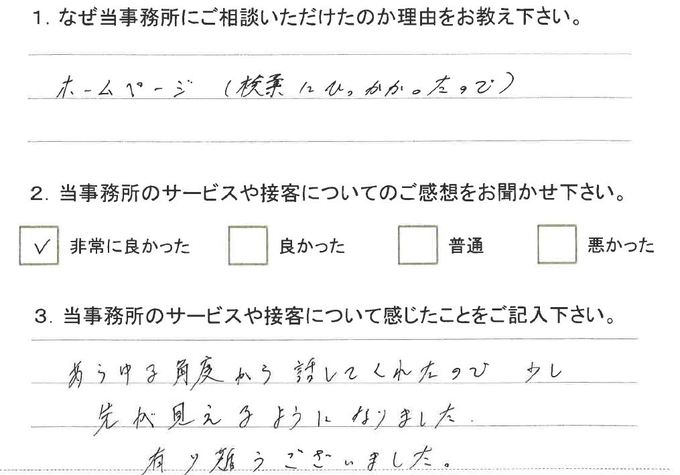 1．なぜ当事務所にご相談いただけたのか理由をお教え下さい。
ホームページ（検索にひっかかったので）
2．当事務所のサービスや接客についてのご感想をお聞かせ下さい。
✓ 非常に良かった 良かった 普通 悪かった
3．当事務所のサービスや接客について感じたことをご記入下さい。
あらゆる角度から話してくれたので 少し
先が見えるようになりました.
有り難うございました。